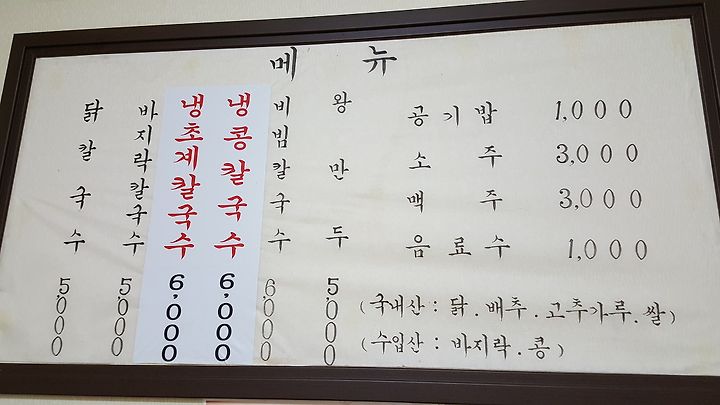 메뉴
닭칼국수 5,000
바지락칼국수 5,000
냉초계칼국수 6,000
냉콩칼국수 6,000
비빔칼국수 6,000
왕만두 5,000
공기밥 1,000
소주 3,000
맥주 3,000
음료수 1,000
(국내산 : 닭.배추.고추가루.쌀)
(수입산 : 바지락.콩)